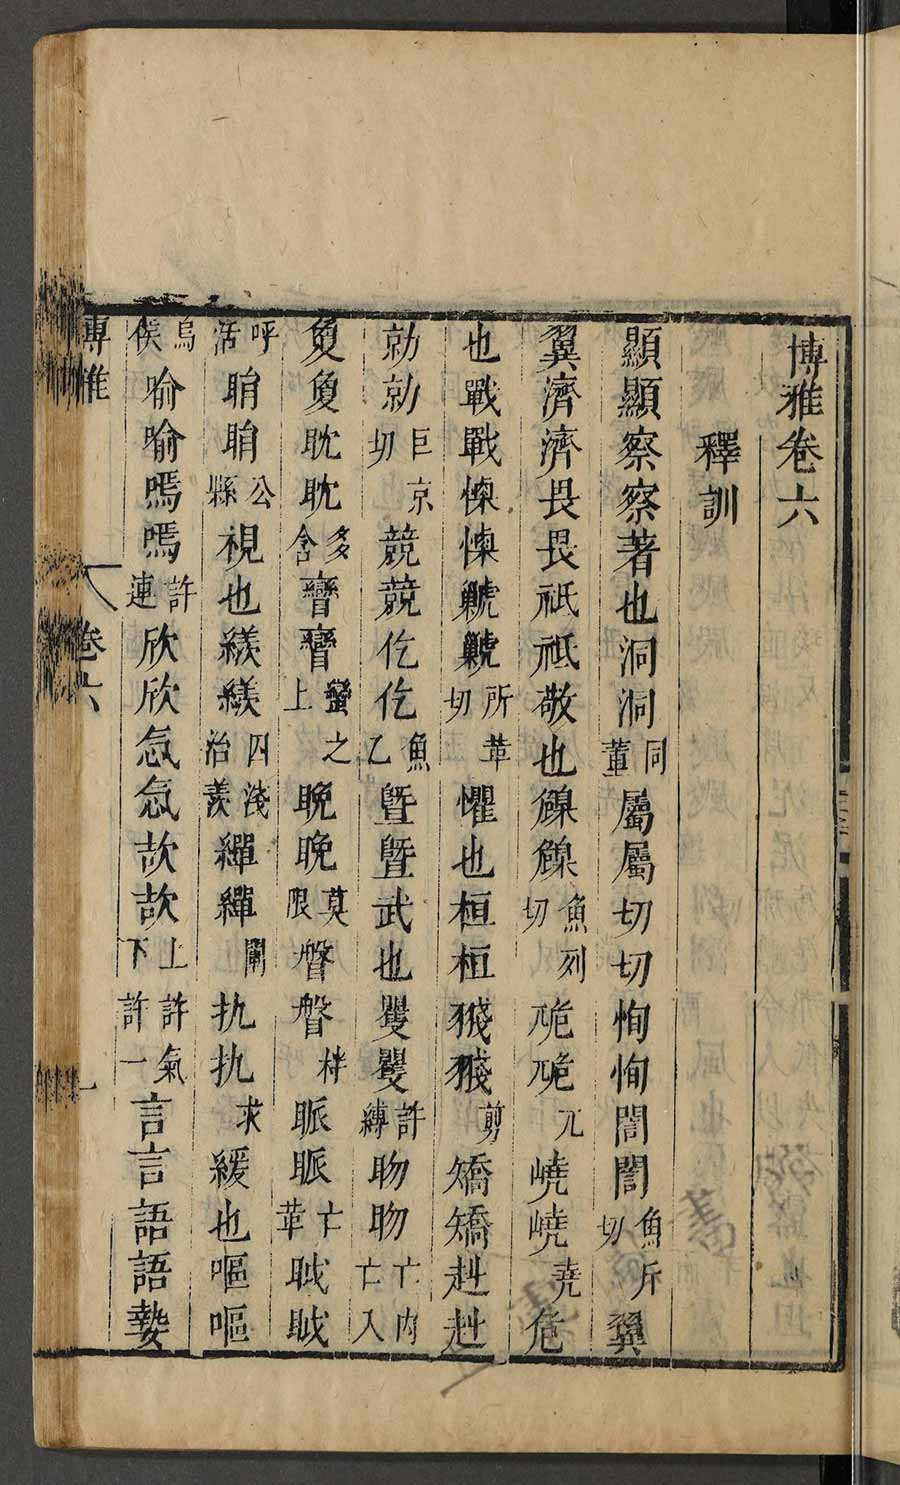 博雅卷六
釋訓
顯顯察察著也洞洞同董屬屬切切恂恂誾誾魚斤切翼
翼濟濟畏畏祇祇敬也㒸㒸魚列切卼卼兀嶢嶢堯危
也戰戰悚悚虩虩所革切懼也桓桓㹽㹽剪矯矯赳赳
勍勍巨京切競競仡仡魚乙曁曁武也矍矍許縛眑眑亡内亡入
敻敻眈眈多含矕矕蠻之上晚晚莫限督督梓脈脈亡革眓眓
呼活睊睊公縣視也縒縒四淺治羨繟繟闡扏扏求緩也嘔嘔
烏侯喻喻嘕嘕許連欣欣忥忥㰦㰦上許氣下許一言言語語㜪
博雅
卷六
一